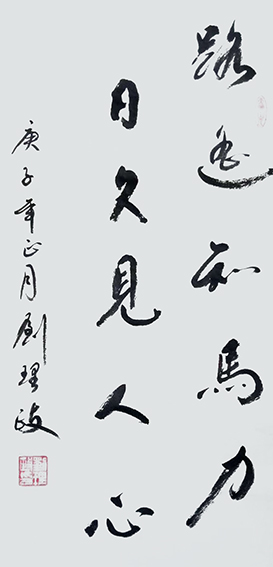 路遥知馬力
日久見人心
庚子年正月劉理政